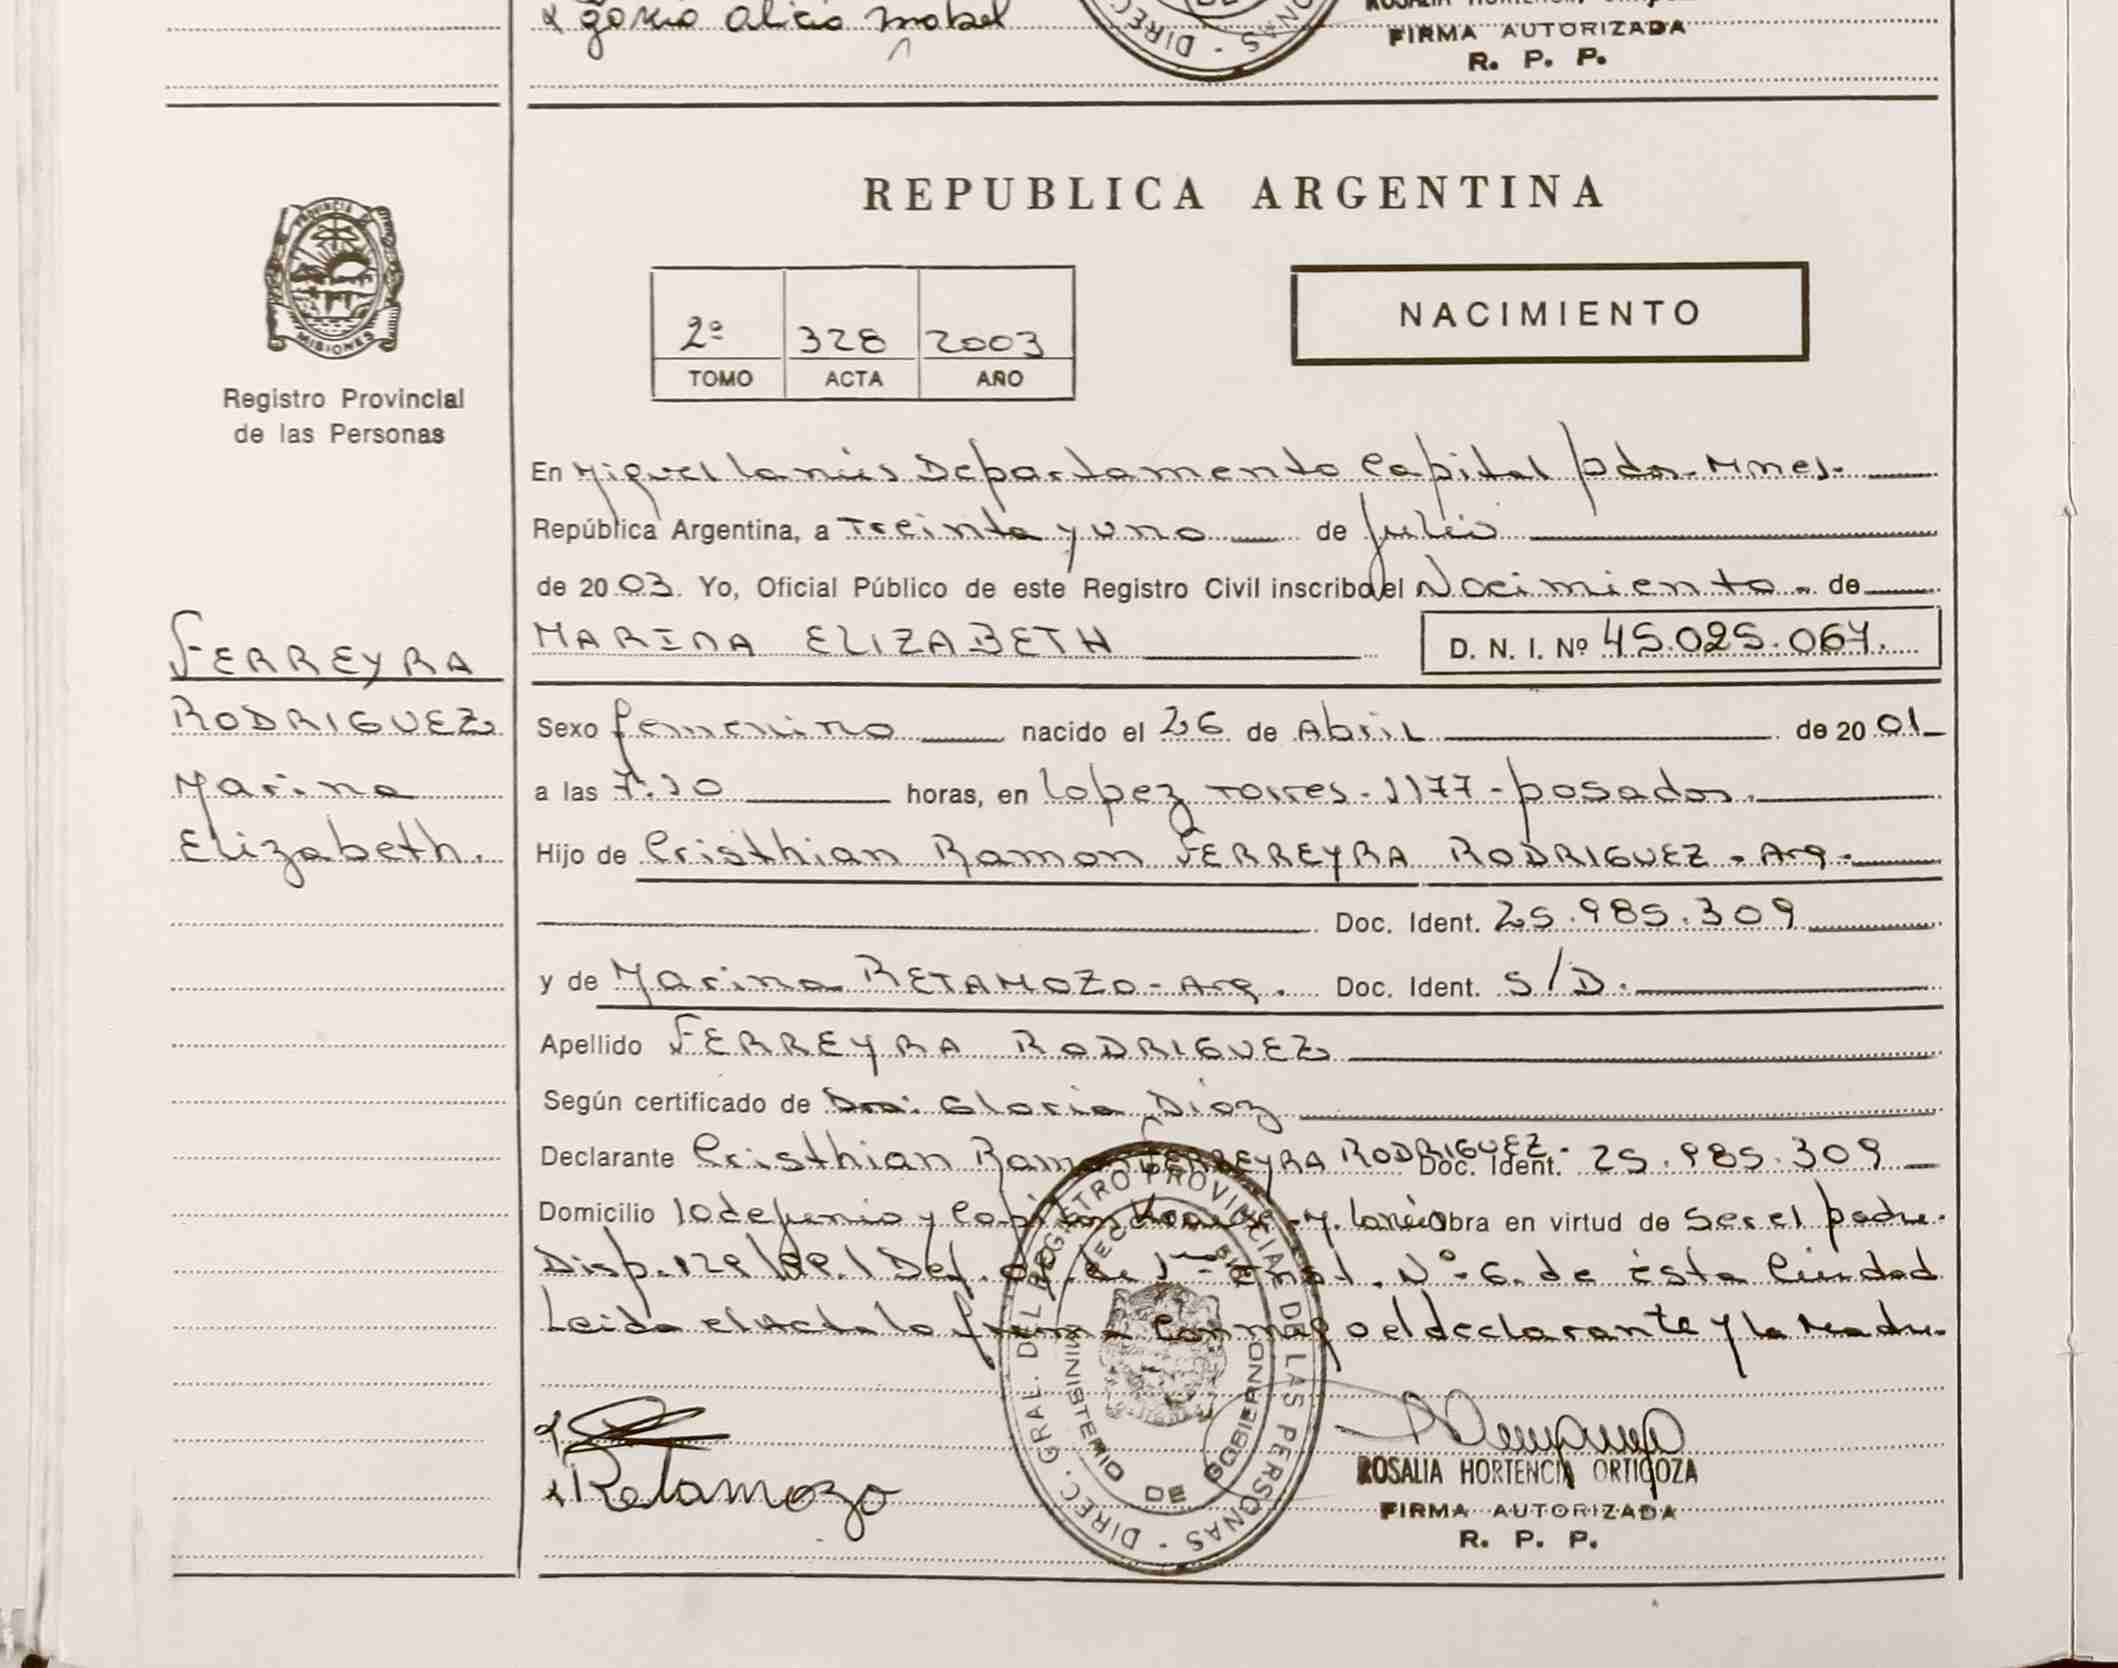 Alicia Mabel
FIRMA AUTORIZADA
R. P. P.
PROVINCIA DE
MISIONES
Registro Provincial
de las Personas
REPUBLICA ARGENTINA
2º 328 2003
TOMO ACTA AÑO
NACIMIENTO
En Miguel Lanús Departamento Capital Pdas. Mnes.
República Argentina, a Treinta y uno de Julio
de 2003. Yo, Oficial Público de este Registro Civil inscribo el Nacimiento de
MARINA ELIZABETH D. N. I. Nº 45.025.067.
FERREYRA
RODRIGUEZ
Marina
Elizabeth.
Sexo femenino nacido el 26 de Abril de 2001
a las horas, en Lopez Torres - 1177 - posadas.
Hijo de Cristhian Ramon FERREYRA RODRIGUEZ - Arg.
Doc. Ident. 25.985.309
y de Marina RETAMOZO - Arg. Doc. Ident. S/D.
Apellido FERREYRA RODRIGUEZ
Según certificado de Dra. Gloria Diaz
Declarante Cristhian Ramon FERREYRA RODRIGUEZ - Doc. Ident. 25.985.309
Domicilio y M. Lanús Obra en virtud de ser el padre.
Disp. 129/99. Def. Of. de Inst. Nº 6. de ésta Ciudad
Leida el Acta la firma conmigo el declarante y la Madre.
Retamozo
DIREC. GRAL. DEL REGISTRO PROVINCIAL DE LAS PERSONAS
MINISTERIO DE GOBIERNO
ROSALIA HORTENCIA ORTIGOZA
FIRMA AUTORIZADA
R. P. P.